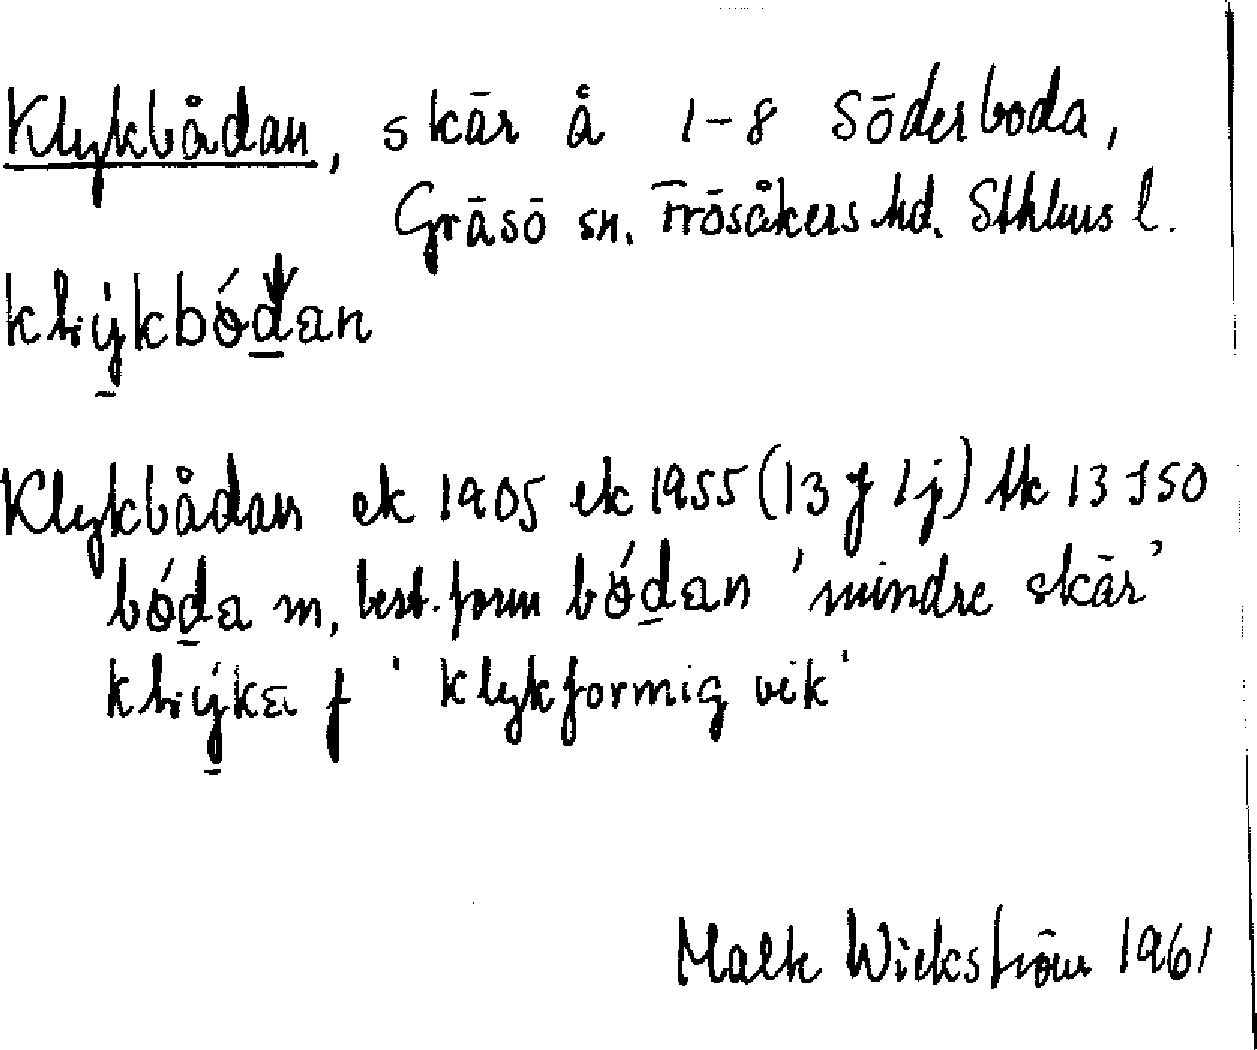 Klykbådan, skär å 1-8 Söderboda,
Gräsö sn. Frösåkers hd. Sthlms l.
Klykbådan ek 1905 ek 1955 (13 J 1j) tk 13 J50
m, best. form 'mindre skär'
f 'klykformig vik'
Wickström 1961